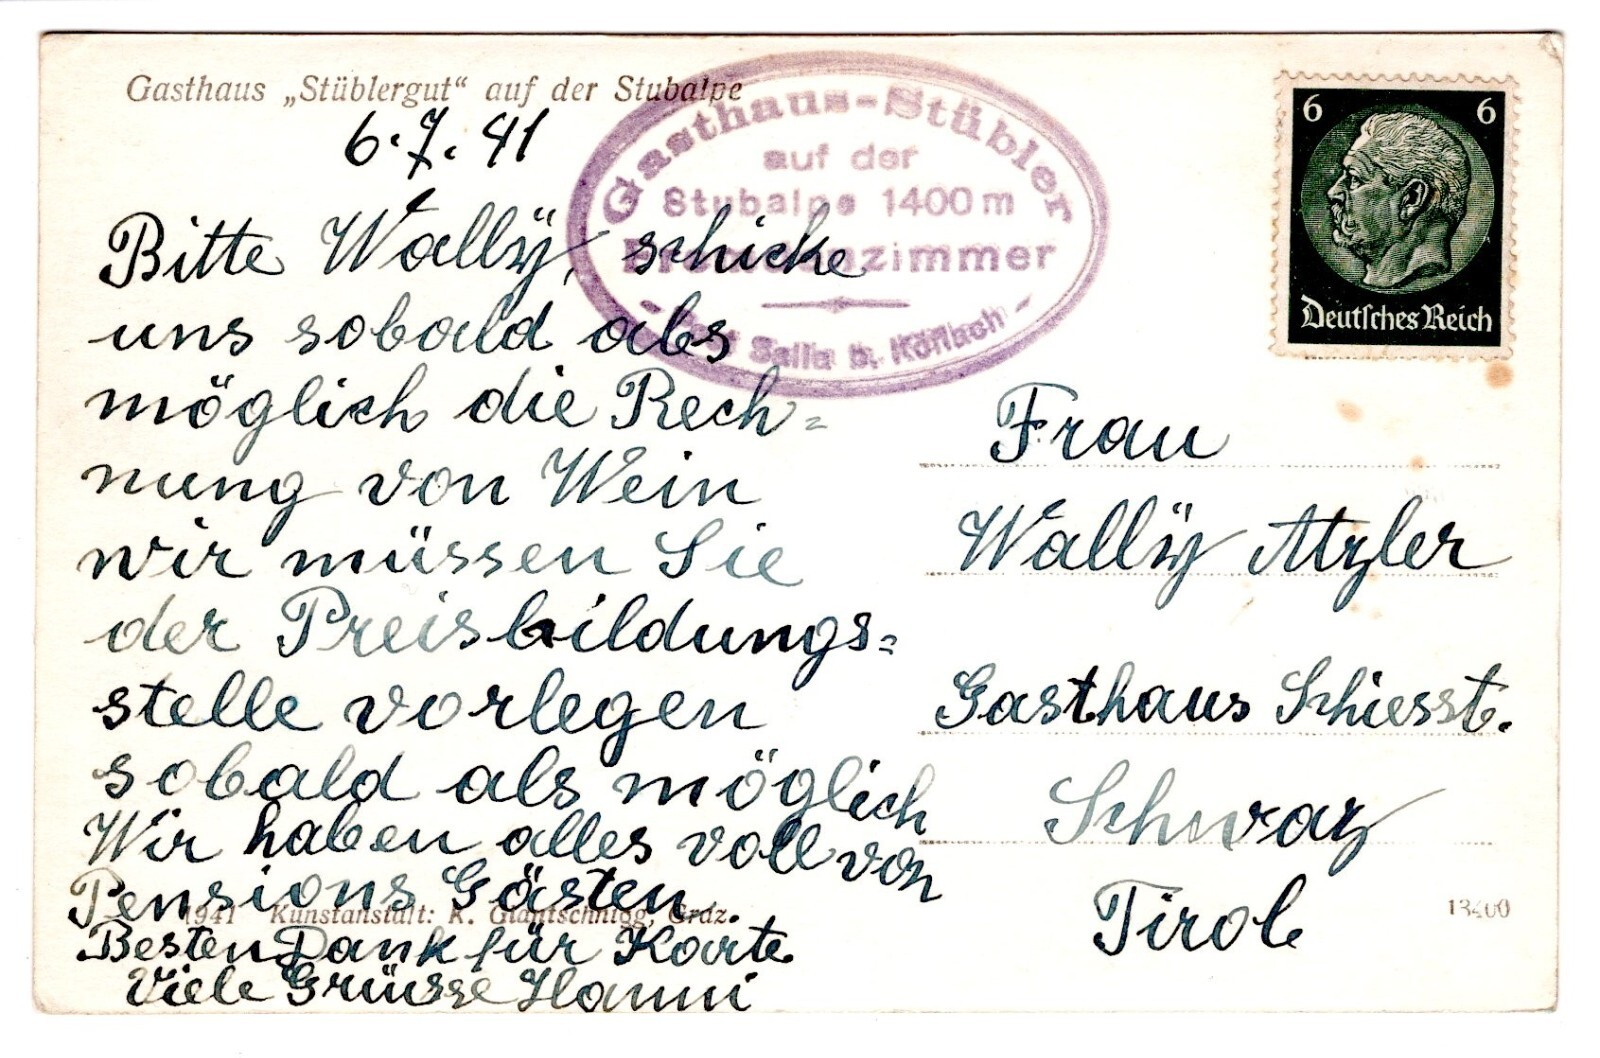 Gasthaus „Stüblergut“ auf der Stubalpe
6.7.41
Bitte Wallÿ, schicke
uns sobald als
möglich die Rech=
nung von Wein
wir müssen Sie
der Preisbildungs=
stelle vorlegen
sobald als möglich
Wir haben alles voll von
Pensions Gästen.
Besten Dank für Karte.
Viele Grüsse Hanni
1941 Kunstanstalt: K. Glantschnigg, Graz.
Gasthaus-Stübler
auf der
Stubalpe 1400 m
Fremdenzimmer
Post Salla b. Köflach
6 6
Deutsches Reich
Frau
Wallÿ Atzler
Gasthaus Schiesst.
Schwaz
Tirol
13400